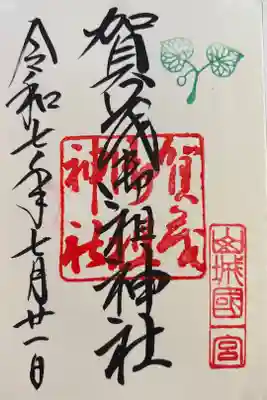 賀茂御祖神社
令和七年七月廿一日
賀茂
御祖
神社
山城國
一宮